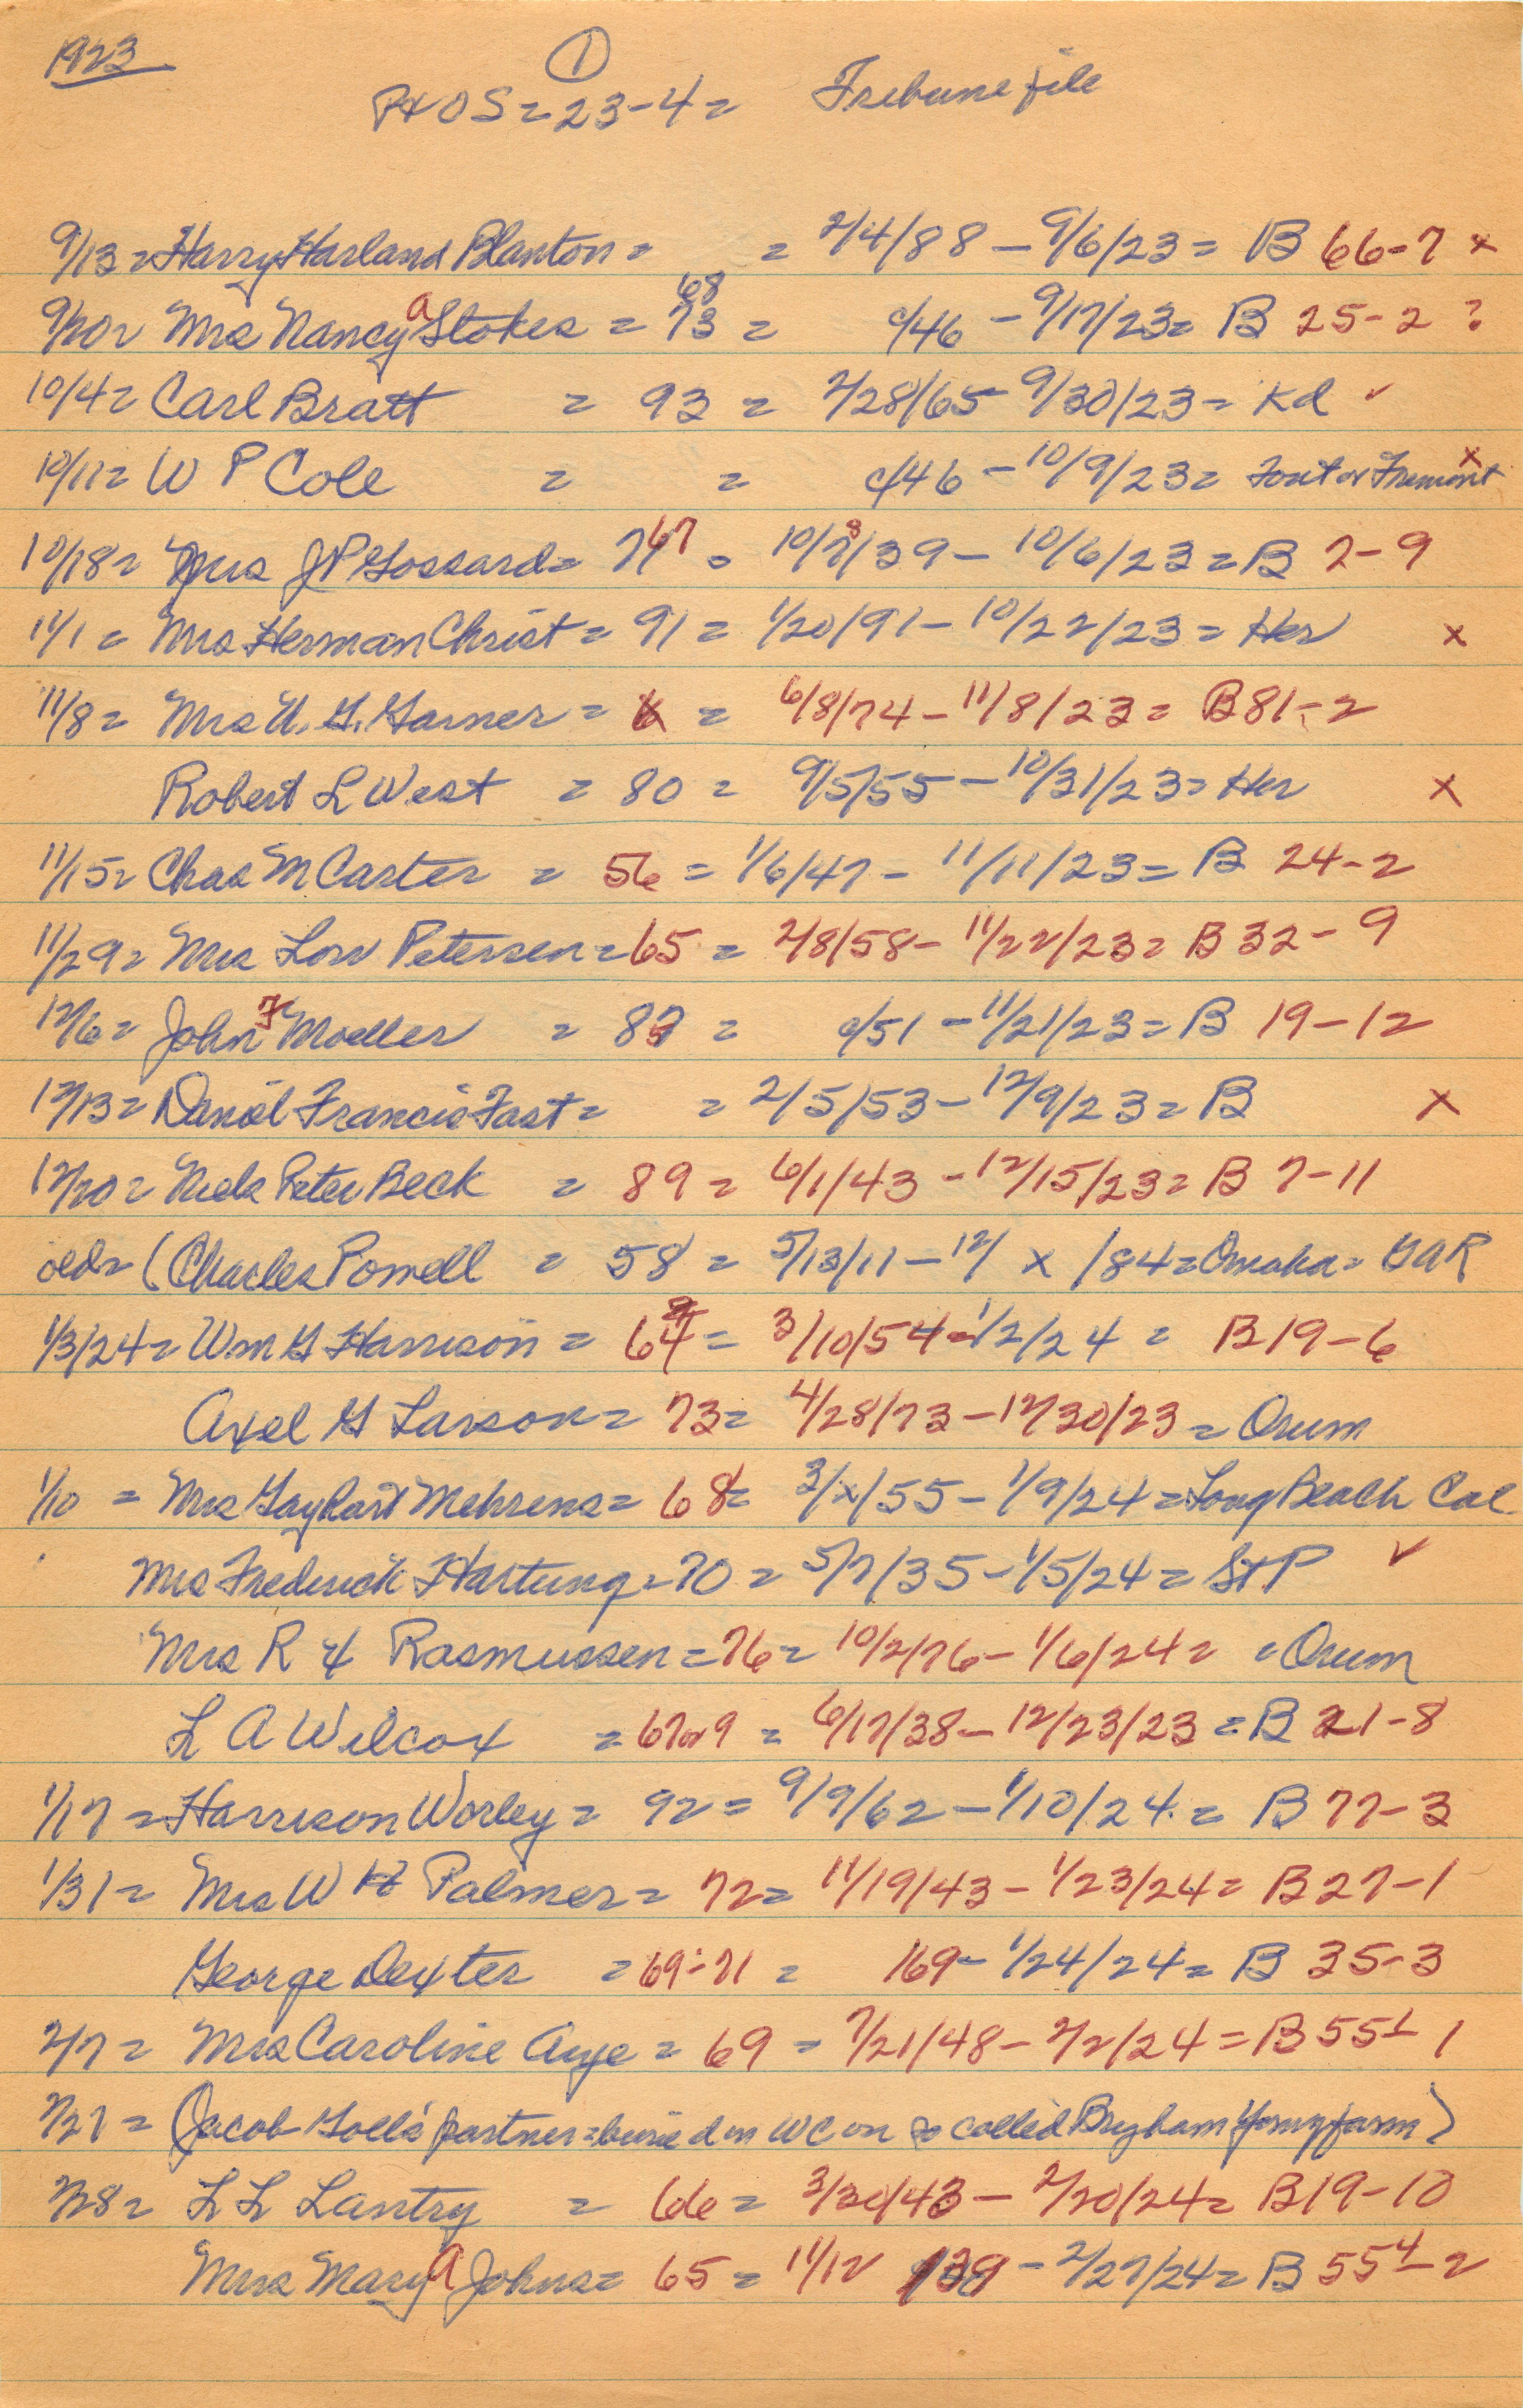 1923
①
PXOS = 23-4 = Tribune file
9/13 = Harry Harland Blanton = = 2/4/88 – 9/6/23 = B 66-7 x
9/20 = Mrs Nancy a Stokes = 73 68 = c/46 – 9/17/23 = B 25-2 ?
10/4 = Carl Bratt = 93 = 2/28/65 – 9/30/23 = Kd ✓
10/11 = W P Cole = = c/46 – 10/9/23 = Font or Fremont x
10/18 = Mrs J P Gossard = 67 = 10/8/39 – 10/6/23 = B 2-9
11/1 = Mrs Herman Christ = 91 = 1/20/91 – 10/22/23 = Her x
11/8 = Mrs U. G. Garner = x = 6/8/74 – 11/8/23 = B 81-2
Robert L West = 80 = 9/5/55 – 10/31/23 = Her x
11/15 = Chas M Carter = 56 = 1/6/47 – 11/11/23 = B 24-2
11/29 = Mrs Lou Petersen = 65 = 2/8/58 – 11/22/23 = B 32-9
12/6 = John F Moeller = 83 = c/51 – 11/21/23 = B 19-12
12/13 = Daniel Francis Fast = = 2/5/53 – 12/9/23 = B x
12/20 = Niels Peter Beck = 89 = 6/1/43 – 12/15/23 = B 7-11
old = (Charles Powell = 58 = 5/13/11 – 12/ x /84 = Omaha = GAR
1/3/24 = Wm G Harrison = 64 = 3/10/54 – 1/2/24 = B 19-6
Axel G Larson = 73 = 4/28/73 – 12/30/23 = Orum
1/10 = Mrs Gayhart Mehrens = 68 = 3/x/55 – 1/9/24 = Long Beach Cal
Mrs Frederick Hartung = 70 = 5/7/35 – 1/5/24 = St P ✓
Mrs R x Rasmussen = 76 = 10/2/76 – 1/6/24 = = Orum
L A Wilcox = 67 or 9 = 6/17/38 – 12/23/23 = B 21-8
1/17 = Harrison Worley = 92 = 9/9/62 – 1/10/24 = B 77-3
1/31 = Mrs W H Palmer = 72 = 11/19/43 – 1/23/24 = B 27-1
George Dexter = 69-71 = 169 – 1/24/24 = B 35-3
2/7 = Mrs Caroline Aye = 69 = 7/21/48 – 2/2/24 = B 55½ 1
2/21 = (Jacob Goll's partner = buried in WC on so called Brigham Young farm)
2/28 = L L Lantry = 66 = 3/30/43 – 2/20/24 = B 19-10
Mrs Mary A Johns = 65 = 11/12 /39 – 2/27/24 = B 55½-2